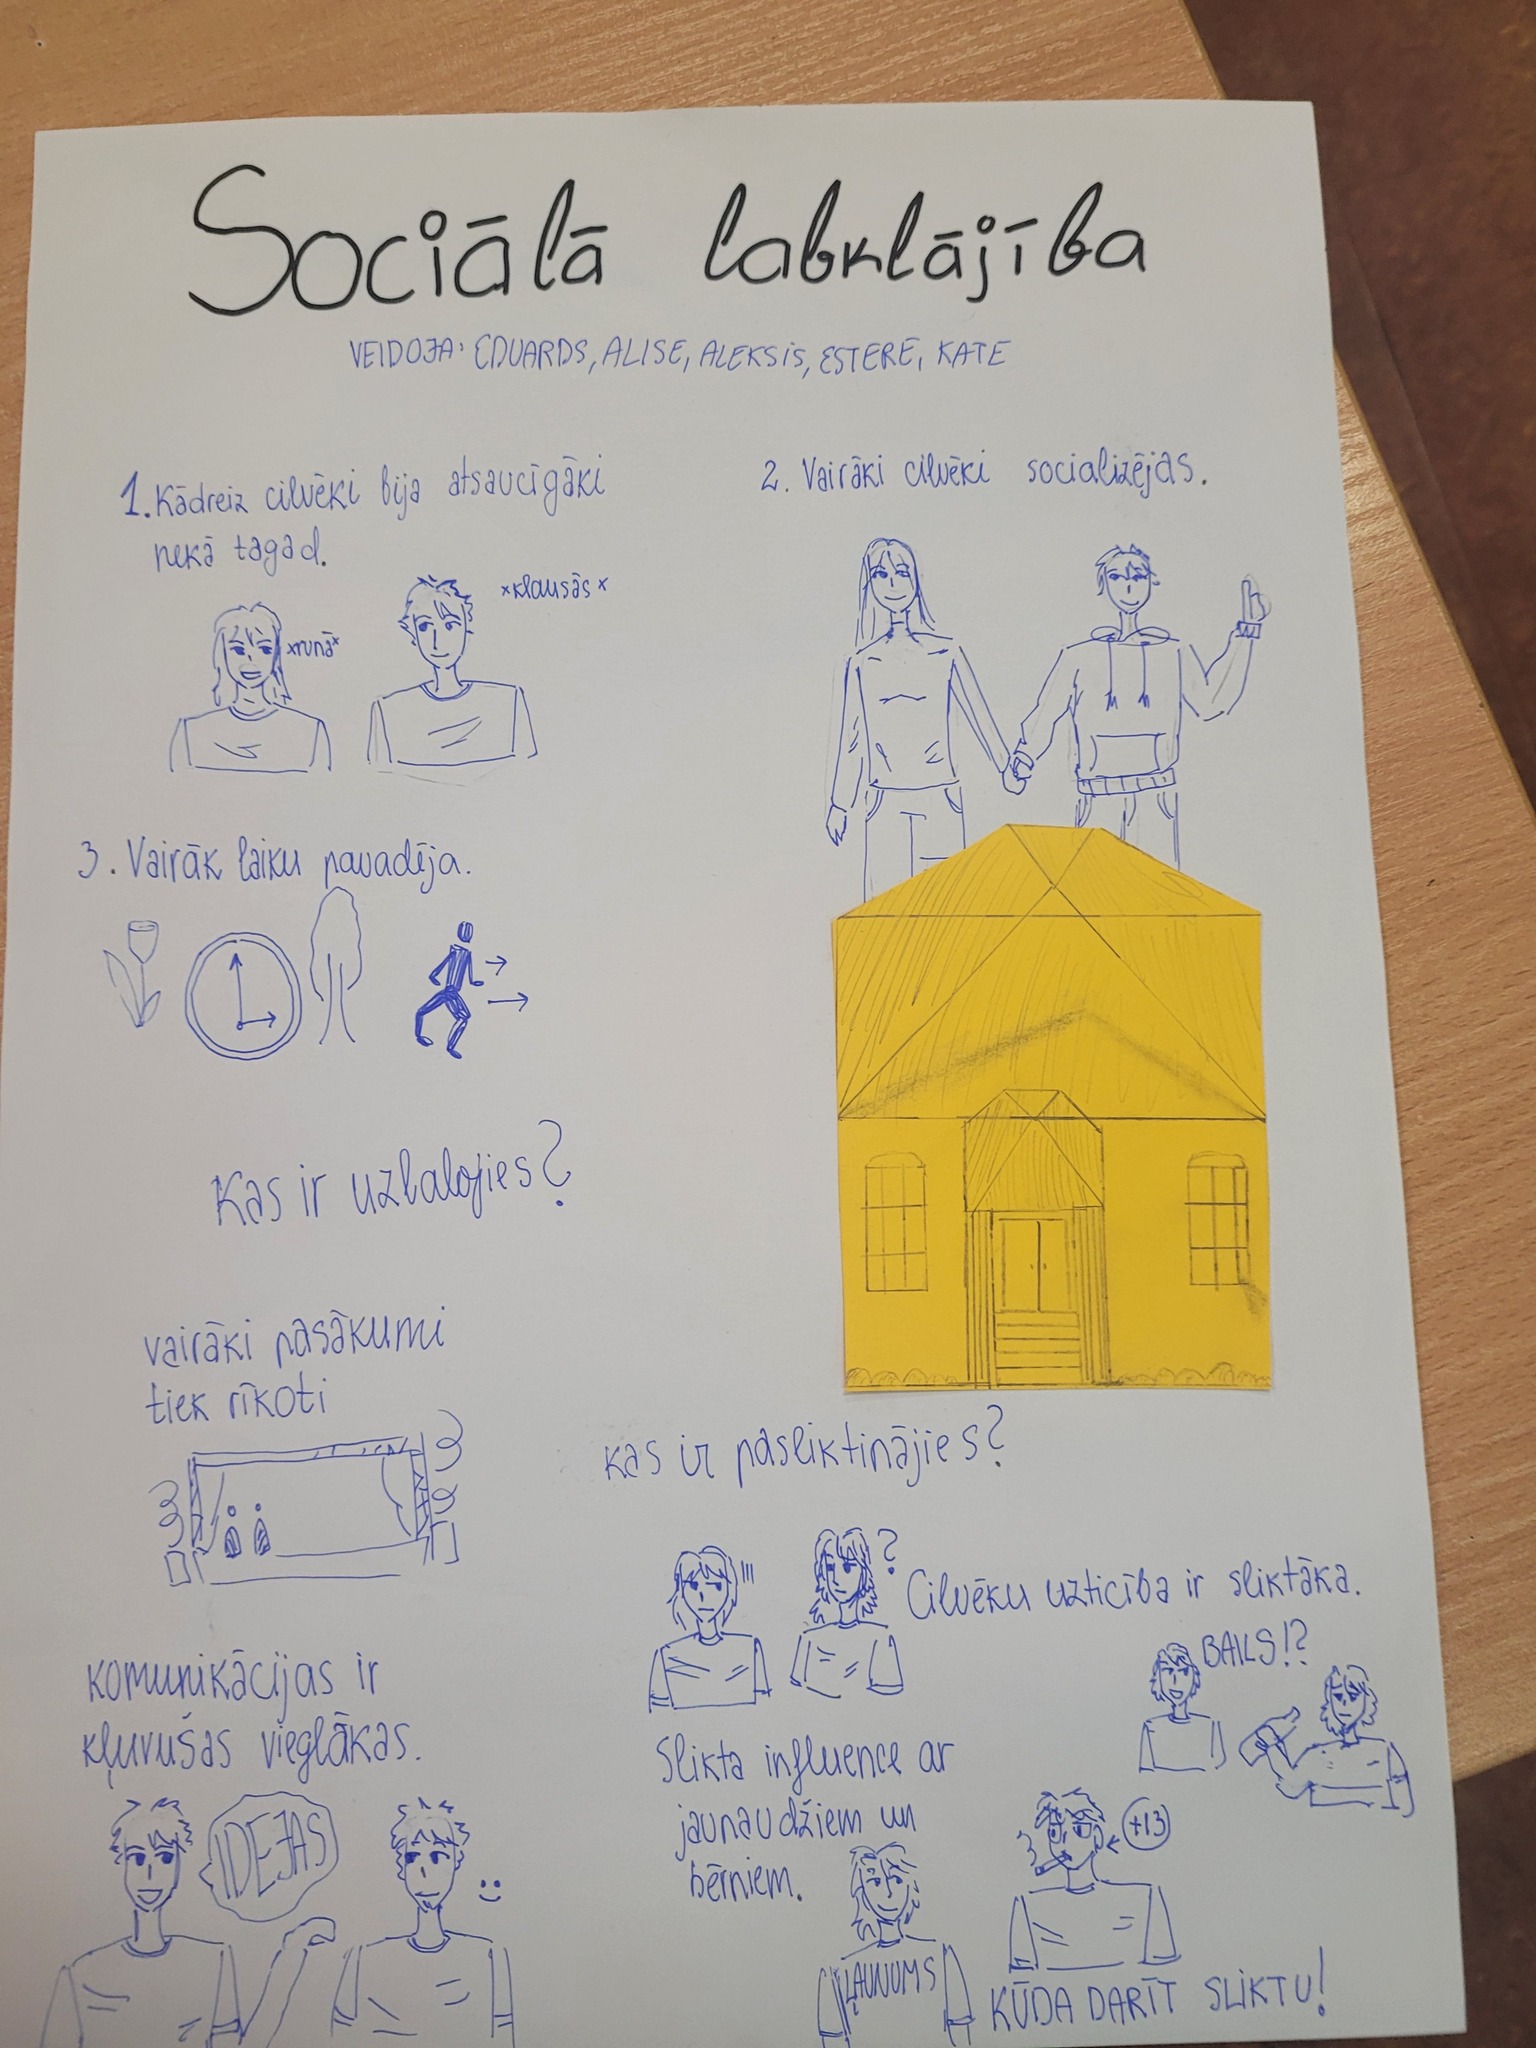 Sociālā labklājība
VEIDOJA: EDUARDS, ALISE, ALEKSIS, ESTERE, KATE
1. Kādreiz cilvēki bija atsaucīgāki
nekā tagad.
×runā×
×klausās×
2. Vairāki cilvēki socializējās.
3. Vairāk laiku pavadīja.
Kas ir uzlabojies?
vairāki pasākumi
tiek rīkoti
komunikācijas ir
kļuvušas vieglākas.
IDEJAS
kas ir pasliktinājies?
!!!
?
Cilvēku uzticība ir sliktāka.
BAILS!?
Slikta influence ar
jaunaudžiem un
bērniem.
+13
ĻAUNUMS
KŪDA DARĪT SLIKTU!